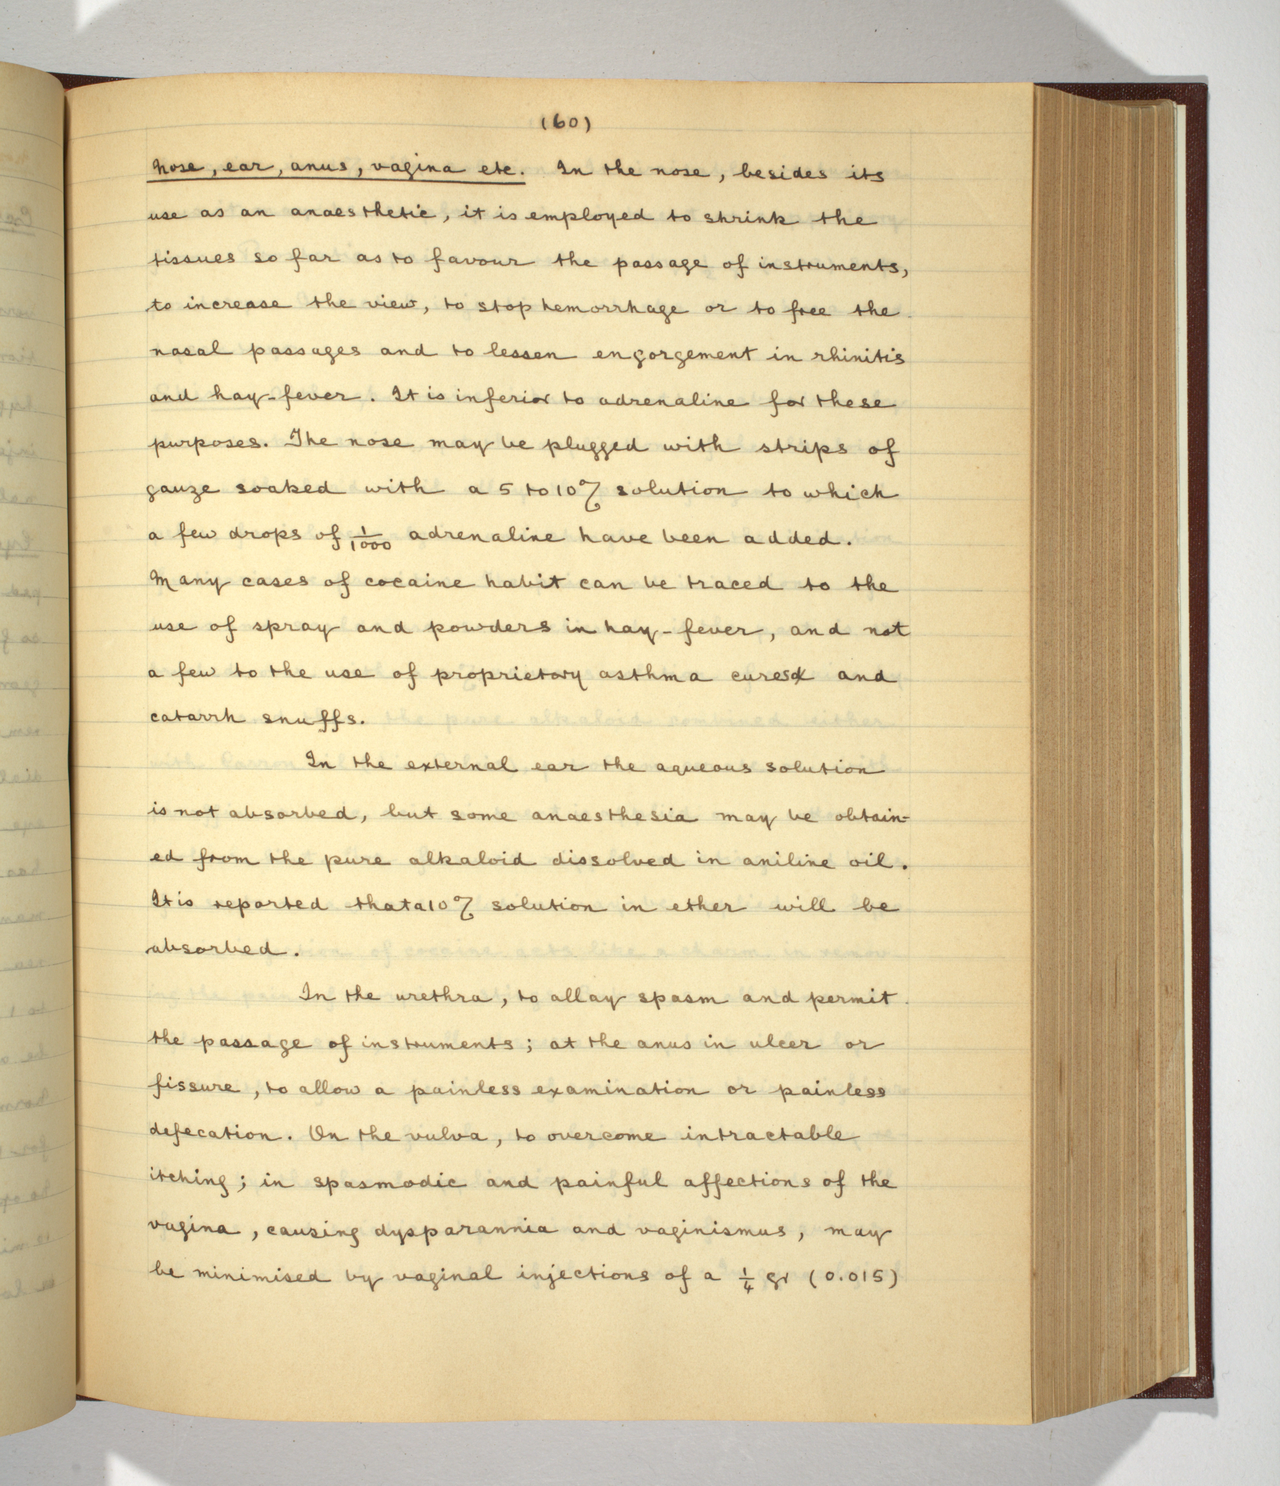 (60)
Nose, ear, anus, vagina etc. In the nose, besides its
use as an anaesthetic, it is employed to shrink the
tissues so far as to favour the passage of instruments,
to increase the view, to stop hemorrhage or to free the
nasal passages and to lessen engorgement in rhinitis
and hay-fever. It is inferior to adrenaline for these
purposes. The nose may be plugged with strips of
gauze soaked with a 5 to 10% solution to which
a few drops of 1/1000 adrenaline have been added.
Many cases of cocaine habit can be traced to the
use of spray and powders in hay-fever, and not
a few to the use of proprietory asthma cures and
catarrh snuffs.
In the external ear the aqueous solution
is not absorbed, but some anaesthesia may be obtain-
ed from the pure alkaloid dissolved in aniline oil.
It is reported that a 10% solution in ether will be
absorbed.
In the urethra, to allay spasm and permit
the passage of instruments; at the anus in ulcer or
fissure, to allow a painless examination or painless
defecation. On the vulva, to overcome intractable
itching; in spasmodic and painful affections of the
vagina, causing dysparannia and vaginismus, may
be minimised by vaginal injections of a 1/4 gr (0.015)